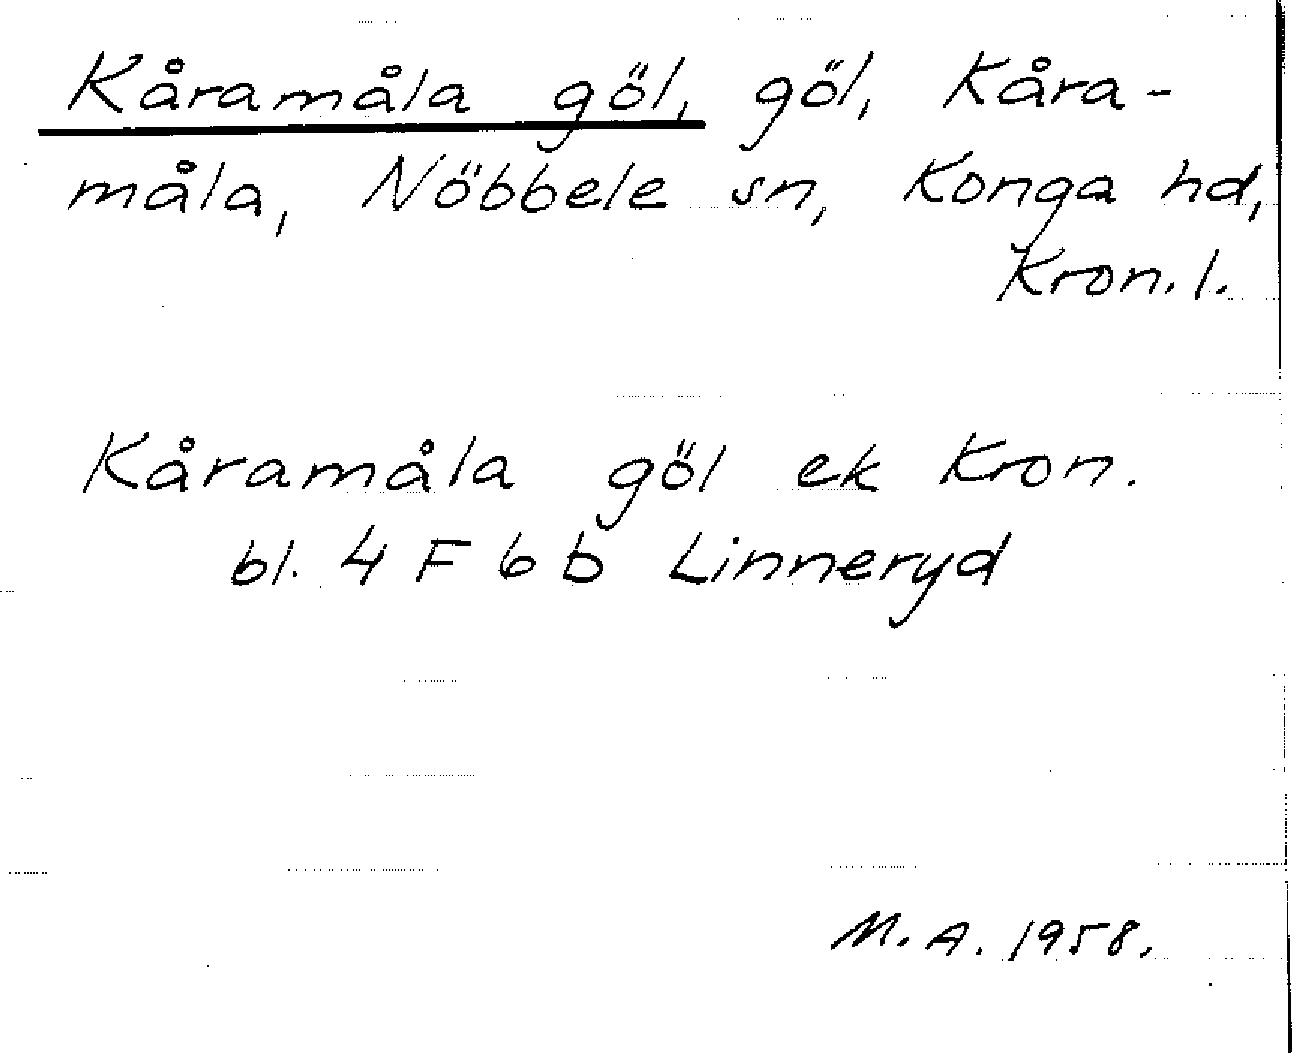 Kåramåla göl, göl, Kåra-
måla, Nöbbele sn, Konga hd,
Kron. l.
Kåramåla göl ek Kron.
bl. 4 F 6 b Linneryd
M. A. 1958.